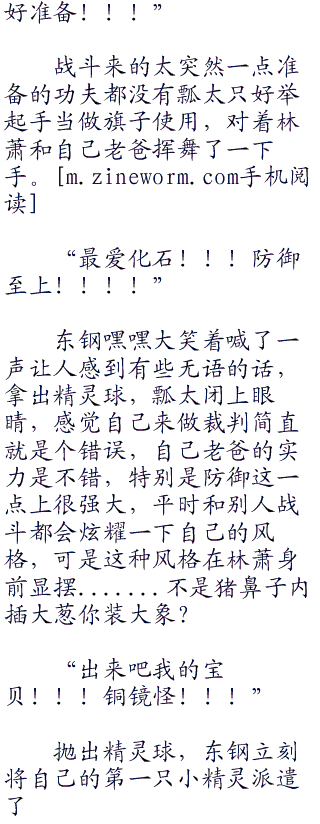 好准备！！！”
战斗来的太突然一点准
备的功夫都没有瓢太只好举
起手当做旗子使用，对着林
萧和自己老爸挥舞了一下
手。[m.zineworm.com手机阅
读]
“最爱化石！！！防御
至上！！！！”
东钢嘿嘿大笑着喊了一
声让人感到有些无语的话，
拿出精灵球，瓢太闭上眼
睛，感觉自己来做裁判简直
就是个错误，自己老爸的实
力是不错，特别是防御这一
点上很强大，平时和别人战
斗都会炫耀一下自己的风
格，可是这种风格在林萧身
前显摆.......不是猪鼻子内
插大葱你装大象？
“出来吧我的宝
贝！！！铜镜怪！！！”
抛出精灵球，东钢立刻
将自己的第一只小精灵派遣
了